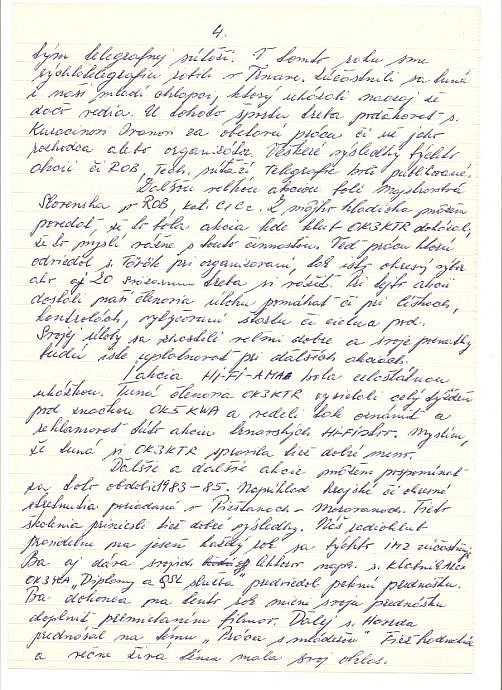 4.
bým telegrafnej súťaži. V tomto roku sme
rýchlotelegrafiu robili v Trnave. Zúčastnili sa tuná
i naši mladí chlapci, ktorý ukázali naozaj že
dačo vedia. U tohoto športu treba poďakovať s.
Ivanovi za obetavú prácu či už jako
rozhodca alebo organizátor. Všetkeré výsledky týchto
akcií či ROB, Tech. súťaží, Telegrafie boli publikované.
Ďalšou veľkou akciou boli Majstrovstvá
Slovenska v ROB, kat. C1 C2. Z môjho hľadiska môžem
povedať, že to bola akcia kde klub OK3KTR dokázal,
že to myslí vážne s touto činnosťou. Tuť prácu ktorú
odviedol s. Török pri organizovaní, tak isto okresný výbor
ako aj ZO Zväzarmu treba si vážiť. Pri tejto akcii
dostali naši členovia úlohu pomáhať či při štartoch,
kontrolách, vyhľadávaní startu či cieľa pod.
Svojej úlohy sa zhostili veľmi dobre a svoje poznatky
budú iste uplatňovať pri ďalších akciách.
I akcia Hi-Fi-AMA bola celoštátnou
ukážkou. Tuná členovia OK3KTR vysielali celý týždeň
pod značkou OK5KWA a vedeli tak oznámiť a
reklamovať túto akciu trnavských Hi-Fi. Myslím,
že tuná si OK3KTR spravila tiež dobré meno.
Ďalšie a ďalšie akcie môžem pospomínať
za toto obdobie 1983-85. Napríklad krajské či okresné
stretnutia poriadané v Piešťanoch - Moravanoch. Tieto
školenia priniesli tiež dobré výsledky. Náš radioklub
pravidelne na jeseň každý rok sa týchto IMZ zúčastňuje
Ba aj dáva svojich lektorov napr. s.
"Diplomy a QSL služba" predviedol peknú prednášku.
Ba dokonca na tento rok mieni svoju prednášku
doplniť premietaním filmov. Ďalej s. Horeda
prednášal na tému "Práca s mládežou" Tiež hodnotná
a večne živá téma mala svoj ohlas.